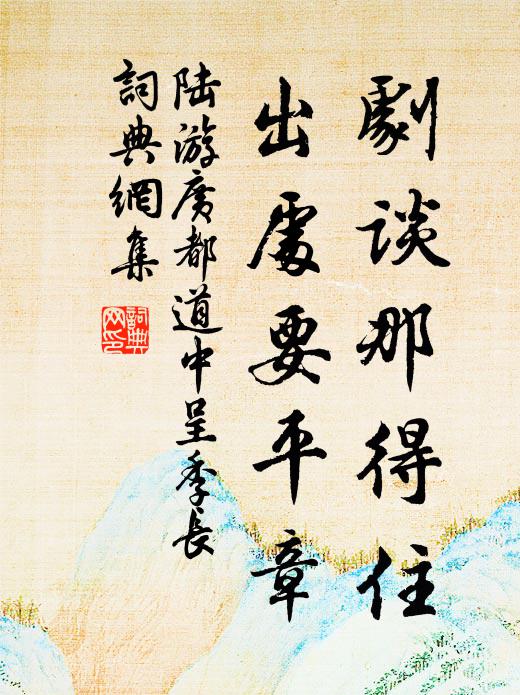 劇談那得住
出處要平章
陸游廣都道中呈季長
詞典網集
詞典
网印